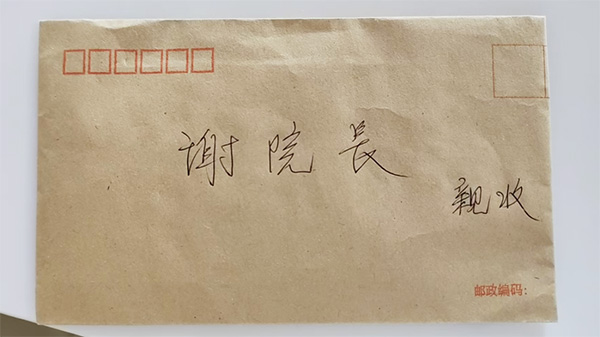 谢院長
親收
邮政编码: